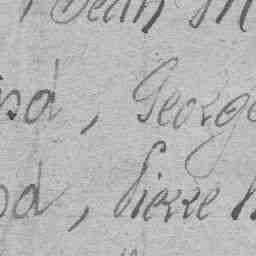 Jean M
sd, George
d, Pierre